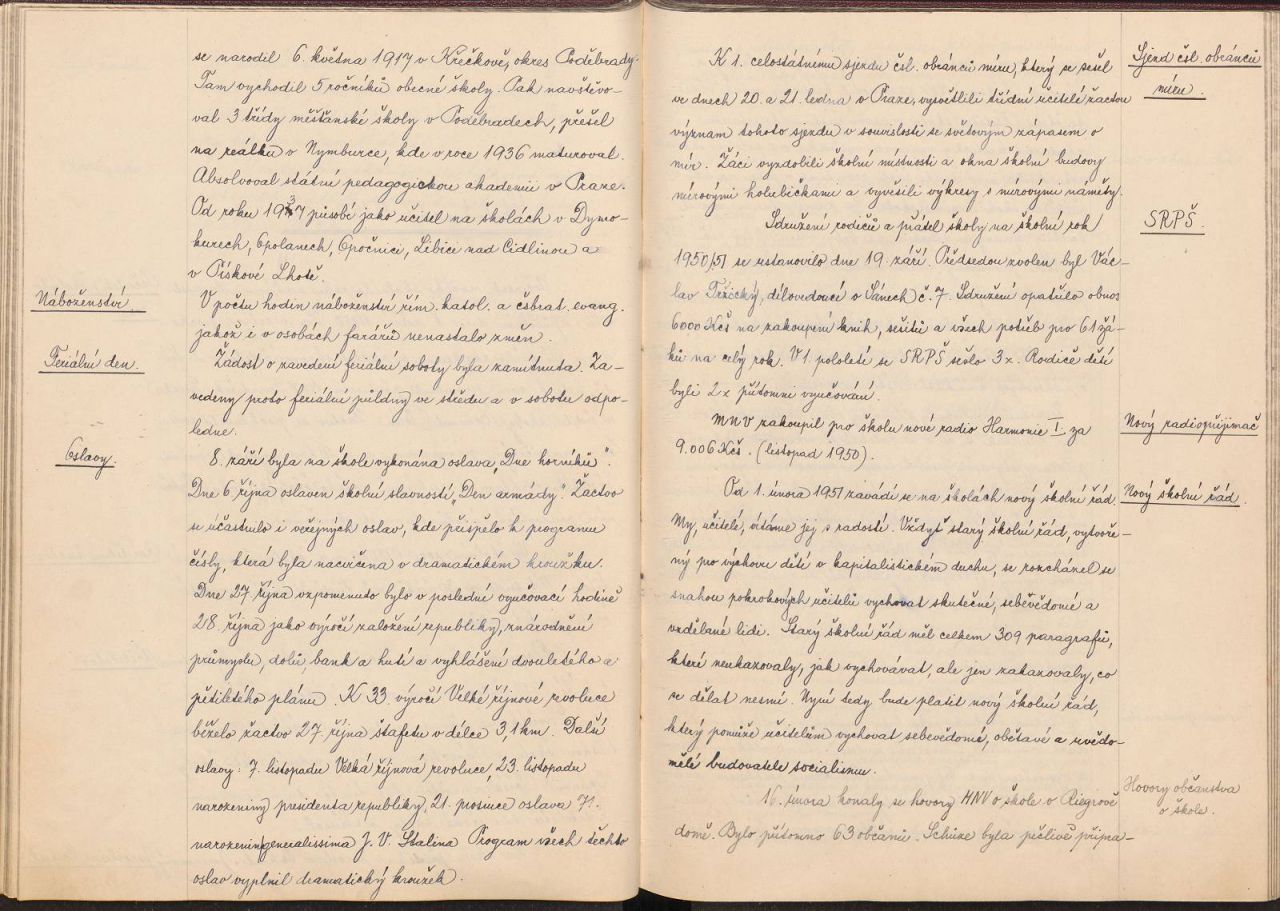 se narodil 6. května 1917 v Křečkově, okres Poděbrady.
Tam vychodil 5 ročníků obecné školy. Pak navštěvo-
val 3 třídy měšťanské školy v Poděbradech, přešel
na reálku v Nymburce, kde v roce 1936 maturoval.
Absolvoval státní pedagogickou akademii v Praze.
Od roku 1937 působí jako učitel na školách v Dymo-
kurech, Opolanech, Opočnici, Libici nad Cidlinou a
v Pískové Lhotě.
Náboženství.
V počtu hodin náboženství řím. katol. a čsbrat. evang.
jakož i o osobách farářů nenastalo změn.
Feriální den.
Žádost o zavedení feriální soboty byla zamítnuta. Za-
vedeny proto feriální půldny ve středu a v sobotu odpo-
ledne.
Oslavy.
8. září byla na škole vykonána oslava „Dne horníků“.
Dne 6. října oslaven školní slavností „Den armády“. Žactvo
se účastnilo i veřejných oslav, kde přispělo k programu
čísly, která byla nacvičena v dramatickém kroužku.
Dne 27. října vzpomenuto bylo v poslední vyučovací hodině
28. října jako výročí založení republiky, znárodnění
průmyslu, dolů, bank a hutí a vyhlášení dvouletého a
pětiletého plánu. K 33. výročí Velké říjnové revoluce
běželo žactvo 27. října štafetu v délce 3,1 km. Další
oslavy: 7. listopadu Velká říjnová revoluce, 23. listopadu
narozeniny presidenta republiky, 21. prosince oslava 71.
narozenin generalissima J. V. Stalina. Program všech těchto
oslav vyplnil dramatický kroužek.
Sjezd čsl. obránců
míru.
K 1. celostátnímu sjezdu čsl. obránců míru, který se sešel
ve dnech 20. a 21. ledna v Praze, vysvětlili třídní učitelé žactvu
význam tohoto sjezdu v souvislosti se světovým zápasem o
mír. Žáci vyzdobili školní místnosti a okna školní budovy
mírovými holubičkami a vyvěsili výkresy s mírovými náměty.
SRPŠ.
Sdružení rodičů a přátel školy na školní rok
1950/51 se ustanovilo dne 19. září. Předsedou zvolen byl Vác-
lav Těžický, dílovedoucí v Sánech č. 7. Sdružení opatřilo obnos
6000 Kčs na zakoupení knih, sešitů a všech potřeb pro 61 žá-
ků na celý rok. V 1. pololetí se SRPŠ sešlo 3x. Rodiče dětí
byli 2x přítomni vyučování.
Nový radiopřijimač
MNV zakoupil pro školu nové radio Harmonie I za
9.006 Kčs. (listopad 1950).
Nový školní řád.
Od 1. února 1951 zavádí se na školách nový školní řád.
My, učitelé, vítáme jej s radostí. Vždyť starý školní řád, vytvoře-
ný pro výchovu dětí v kapitalistickém duchu, se rozcházel se
snahou pokrokových učitelů vychovat skutečné, sebevědomé a
vzdělané lidi. Starý školní řád měl celkem 309 paragrafů,
které neukazovaly, jak vychovávat, ale jen zakazovaly, co
se dělat nesmí. Nyní tedy bude platit nový školní řád,
který pomůže učitelům vychovat sebevědomé, obětavé a uvědo-
mělé budovatele socialismu.
Hovory občanstva
o škole.
16. února konaly se hovory MNV o škole v Riegrově
domě. Bylo přítomno 63 občanů. Schůze byla pečlivě připra-